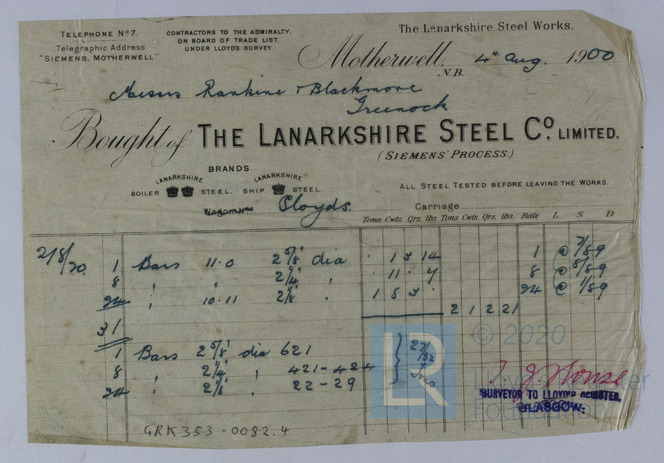 TELEPHONE Nº 7.
Telegraphic Address
"SIEMENS, MOTHERWELL"
CONTRACTORS TO THE ADMIRALTY,
ON BOARD OF TRADE LIST,
UNDER LLOYDS SURVEY
The Lanarkshire Steel Works.
Motherwell, 4th Aug. 1900
N.B.
Messrs Rankine & Blackmore
Greenock
Bought of THE LANARKSHIRE STEEL Cº. LIMITED.
(SIEMENS' PROCESS.)
BRANDS
LANARKSHIRE LANARKSHIRE
BOILER STEEL. SHIP STEEL
ALL STEEL TESTED BEFORE LEAVING THE WORKS.
Lloyds.
Carriage
Tons. Cwts. Qrs. lbs. Tons. Cwts. Qrs. lbs. Rate L S D
2/8/00. 1 Bars 11.0 2 5/8 dia 1 3 14 1 @ 7/8/9
8 " " 2 1/4 " 11 " 4 8 @ 8/8/9
24 " 10.11 2 1/8 " 1 8 3 " 24 @ 1/8/9
2 1 2 21
31
1 Bars 2 5/8 dia 621
8 " 2 1/4 " 421-424
24 " 2 1/8 " 22-29
27/32
Tns.
LR
© 2020
SURVEYOR TO LLOYD'S REGISTER,
GLASGOW.
GRK353-0082.4